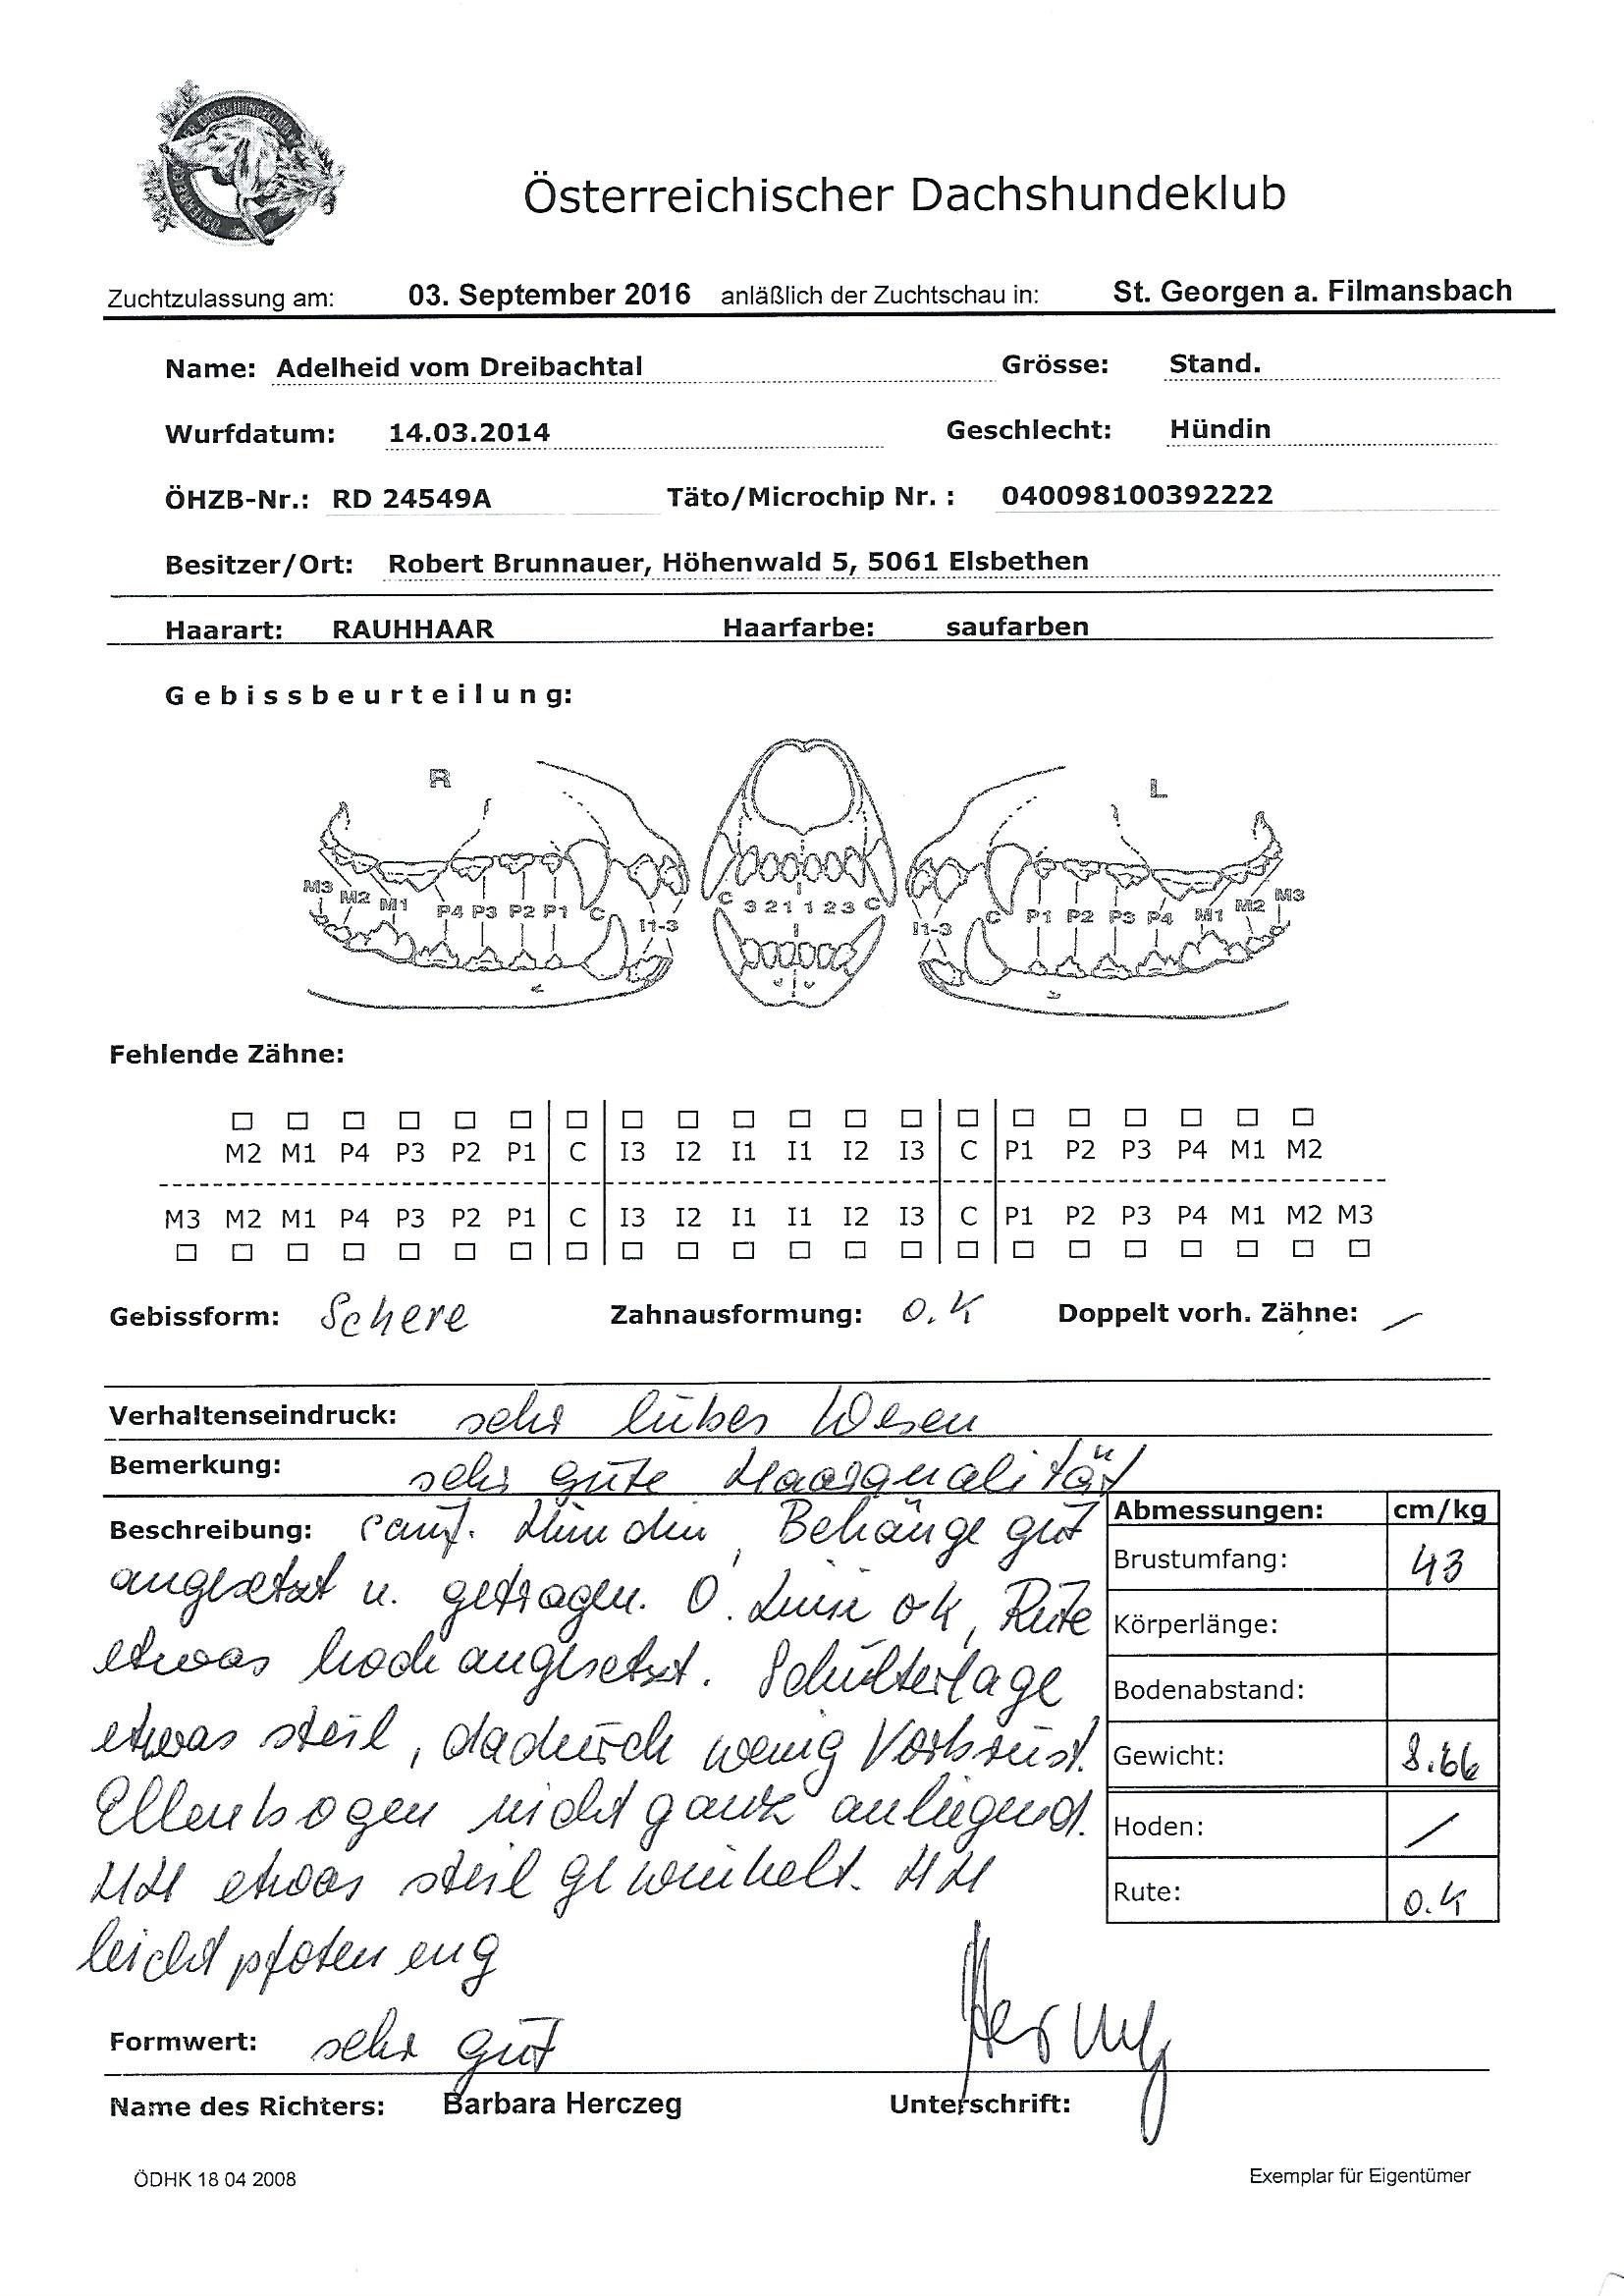 Österreichischer Dachshundeklub
Zuchtzulassung am: 03. September 2016 anläßlich der Zuchtschau in: St. Georgen a. Filmansbach
Name: Adelheid vom Dreibachtal Grösse: Stand.
Wurfdatum: 14.03.2014 Geschlecht: Hündin
ÖHZB-Nr.: RD 24549A Täto/Microchip Nr. : 040098100392222
Besitzer/Ort: Robert Brunnauer, Höhenwald 5, 5061 Elsbethen
Haarart: RAUHHAAR Haarfarbe: saufarben
Gebissbeurteilung:
R L
M3 M2 M1 P4 P3 P2 P1 C I1-3 C 3 2 1 1 2 3 C I1-3 C P1 P2 P3 P4 M1 M2 M3
Fehlende Zähne:
M2 M1 P4 P3 P2 P1 C I3 I2 I1 I1 I2 I3 C P1 P2 P3 P4 M1 M2
M3 M2 M1 P4 P3 P2 P1 C I3 I2 I1 I1 I2 I3 C P1 P2 P3 P4 M1 M2 M3
Gebissform: Schere Zahnausformung: O.K Doppelt vorh. Zähne: /
Verhaltenseindruck: sehr liebes Wesen
Bemerkung: sehr gute Haarqualität
Beschreibung: Hündin, Behänge gut
angesetzt u. getragen. O. Linie ok, Rute
etwas hoch angesetzt. Schulterlage
etwas steil, dadurch wenig Vorbrust.
Ellenbogen nicht ganz anliegend.
HH etwas steil gewinkelt. HH
leicht pfoteneng
Abmessungen: cm/kg
Brustumfang: 43
Körperlänge:
Bodenabstand:
Gewicht:
Hoden: /
Rute: O.K
Formwert: sehr gut
Name des Richters: Barbara Herczeg Unterschrift:
ÖDHK 18 04 2008 Exemplar für Eigentümer